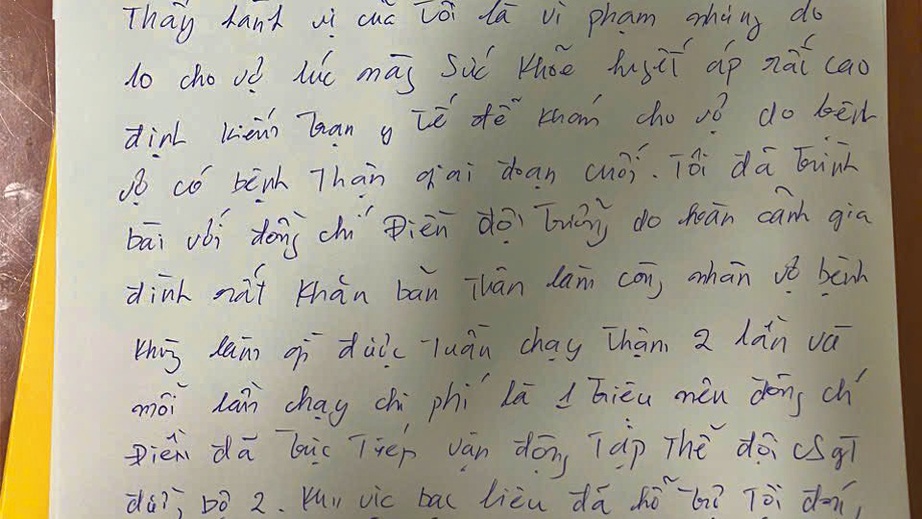 Thấy hành vị của tôi là vi phạm nhưng do
lo cho vợ lúc mãng sức khoẽ huyết áp rất cao
định kiếm trạm y tế để khám cho vợ do bệnh
vợ có bệnh thận giai đoạn cuối. Tôi đã trình
bài với đồng chí Điền đội trưởng do hoàn cảnh gia
đình rất khăn bãn thân làm công nhân vợ bệnh
không làm gì được tuần chạy thận 2 lần và
mỗi lần chạy chi phí là 1 triệu nên đồng chí
Điền đã trực tiếp vận động tập thể đội CSGT
đường bộ 2. Khu vịc bạc liêu đã hỗ trợ tôi